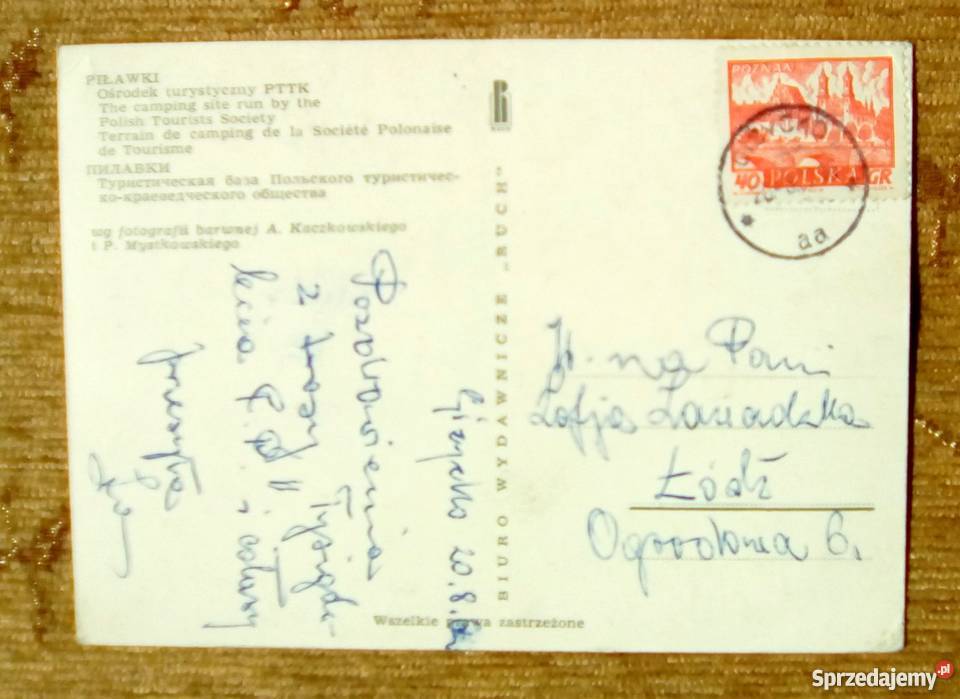 PIŁAWKI
Ośrodek turystyczny PTTK
The camping site run by the
Polish Tourists Society
Terrain de camping de la Société Polonaise
de Tourisme
ПИЛАВКИ
Туристическая база Польского туристичес-
ко-краеведческого общества
wg fotografii barwnej A. Kaczkowskiego
i P. Mystkowskiego
Giżycko 20.8.
Pozdrowienia
z trasy " Tysiąc-
lecia P. P. " i
BIURO WYDAWNICZE „RUCH”
Wszelkie prawa zastrzeżone
POZNAŃ
40 POLSKA GR
aa
W. na Pani
Zofja Zawadzka
Łódź
Ogrodowa 6.
Sprzedajemy.pl